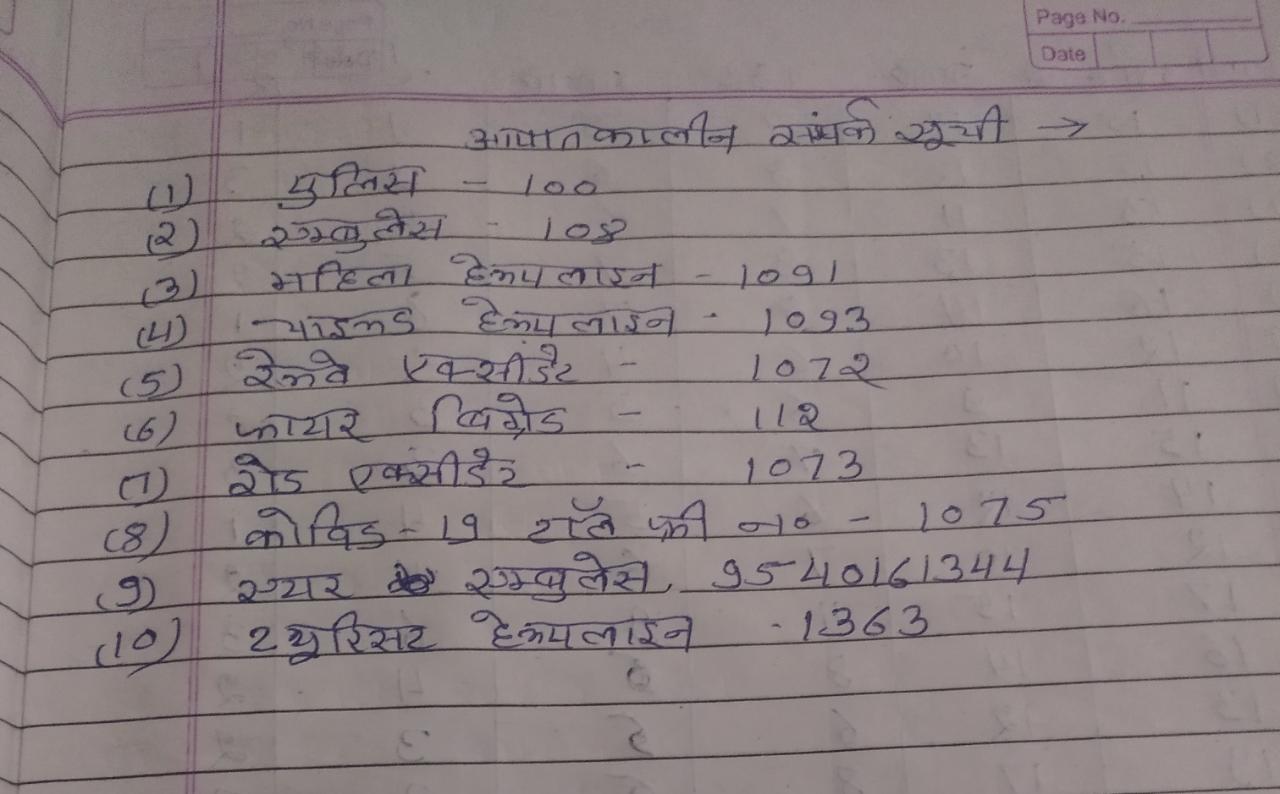 Page No.
Date
आपातकालीन संपर्क सूची →
(1) पुलिस - 100
(2) एम्बुलेस - 108
(3) महिला हेल्पलाइन - 1091
(4) चाइल्ड हेल्पलाइन - 1093
(5) रेल्वे एक्सीडेंट - 1072
(6) फायर ब्रिग्रेड - 112
(7) रोड एक्सीडेंट - 1073
(8) कोविड - 19 टॉल फ्री न० - 1075
(9) एयर एम्बुलेस, 9540161344
(10) टयुरिसट हेल्पलाइन - 1363